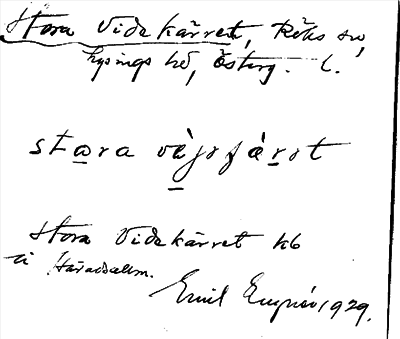 Stora Videkärret, Röks sn,
Lysings hd, Österg. l.
stɷra vàjsjæ̀rət
Stora Videkärret kb
i Häradsallm.
Emil 1929.